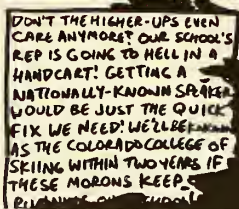 DON'T THE HIGHER-UPS EVEN
CARE ANYMORE? OUR SCHOOL'S
REP IS GOING TO HELL IN A
HANDCART! GETTING A
NATIONALLY-KNOWN SPEAKER
WOULD BE JUST THE QUICK
FIX WE NEED! WE'LL BE KNOWN
AS THE COLORADO COLLEGE OF
SKIING WITHIN TWO YEARS IF
THESE MORONS KEEP